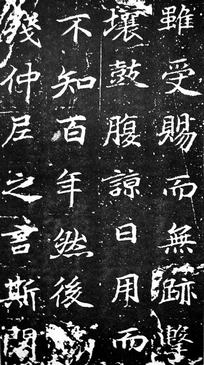 雖受賜而無跡擊
壤鼓腹諒日用而
不知百年然後
幾仲尼之言斯